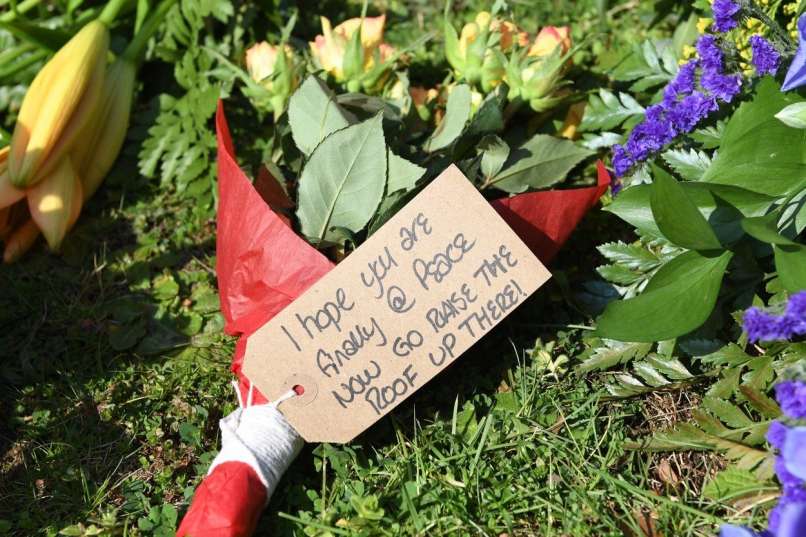 I hope you are
finally @ Peace
Now GO RAISE THE
ROOF UP THERE!